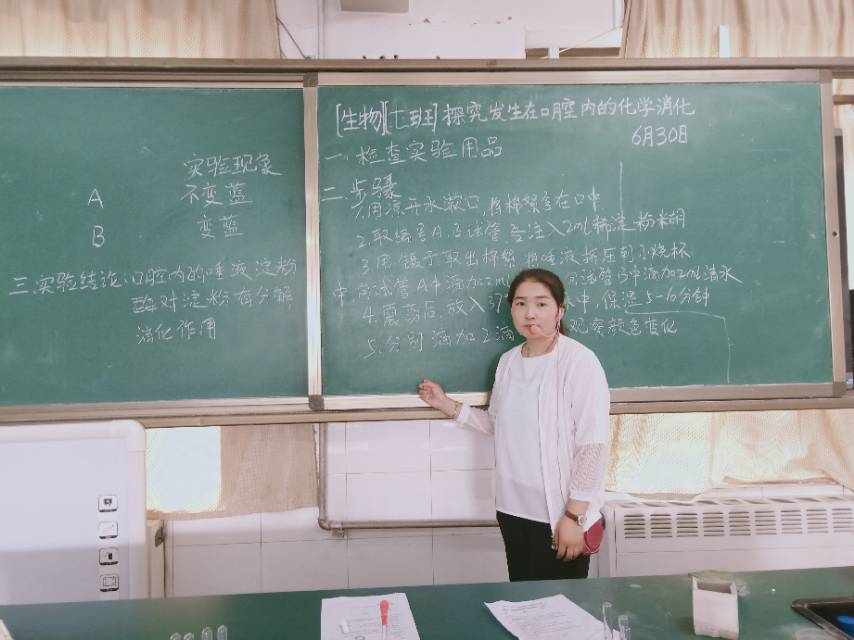 实验现象
A 不变蓝
B 变蓝
三.实验结论:口腔内的唾液淀粉
酶对淀粉有分解
消化作用
[生物][七班]探究发生在口腔内的化学消化
6月30日
一.检查实验用品
二.步骤
1.用凉开水漱口,将棉絮含在口中
2.取编号A.B试管,各注入2mL稀淀粉糊
3.用镊子取出棉絮,将唾液挤压到小烧杯
中,向试管A中滴加2mL 向试管B中滴加2mL清水
4.震荡后,放入37 中,保温5-10分钟
5.分别滴加2滴 观察颜色变化